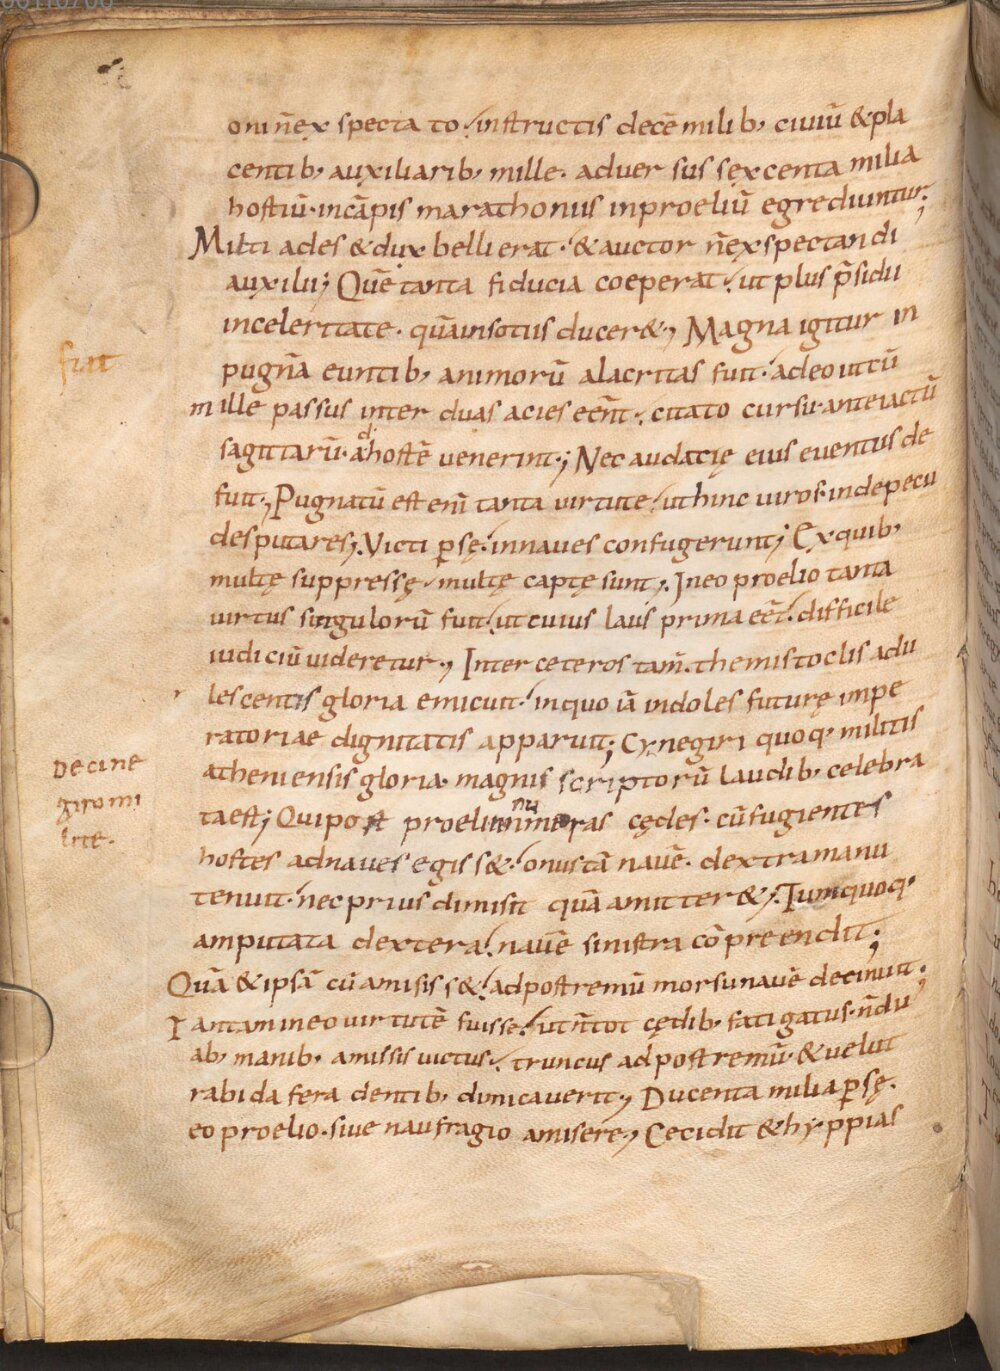 oni n̄ exspectato. instructis decē milib; ciuiū & pla
centib; auxiliarib; mille. aduersus sexcenta milia
hostiū. in cāpis marathoniis in proeliū egrediuntur;
Miltiades & dux belli erat. & auctor n̄ exspectandi
auxilii; Quē tanta fiducia coeperat. ut plus p̄sidii
in celeritate. quā in sotiis duceret; Magna igitur in
pugnā euntib; animorū alacritas fuit. adeo ut cū
mille passus inter duas acies eēnt. citato cursu. ante iactū
sagittarū. ad hostē uenerint; Nec audacię eius euentus de
fuit; Pugnatū est enī tanta uirtute. ut hinc uiros. inde pecu
des putares; Victi p̱sę. in naues confugerunt; Ex quib;
multę suppressę. multę captę sunt; In eo proelio tanta
uirtus singulorū fuit. ut cuius laus prima eēt. difficile
iudiciū uideretur; Inter ceteros tam̄. themistoclis adu
lescentis gloria emicuit. in quo iā indoles futurę impe
ratoriae dignitatis apparuit; Cynegiri quoq; militis
atheniensis gloria. magnis scriptorū laudib; celebra
ta est; Qui post proelii innumeras cędes. cū fugientes
hostes ad naues egiss&. onustā nauē. dextra manu
tenuit. nec prius dimisit quā amitter&; Tum quoq;
amputata dextera. nauē sinistra cōpreendit;
Quā & ipsā cū amisiss&. ad postremū morsu nauē detinuit;
Tantam in eo uirtutē fuisse. ut n̄ tot cędib; fatigatus. n̄ du
ab; manib; amissis uictus. truncus ad postremū. & uelut
rabida fera dentib; dimicauerit; Ducenta milia p̱sę.
eo proelio. siue naufragio amisere; Cecidit & hyppias
fiat
De cine
giro mi
lite.